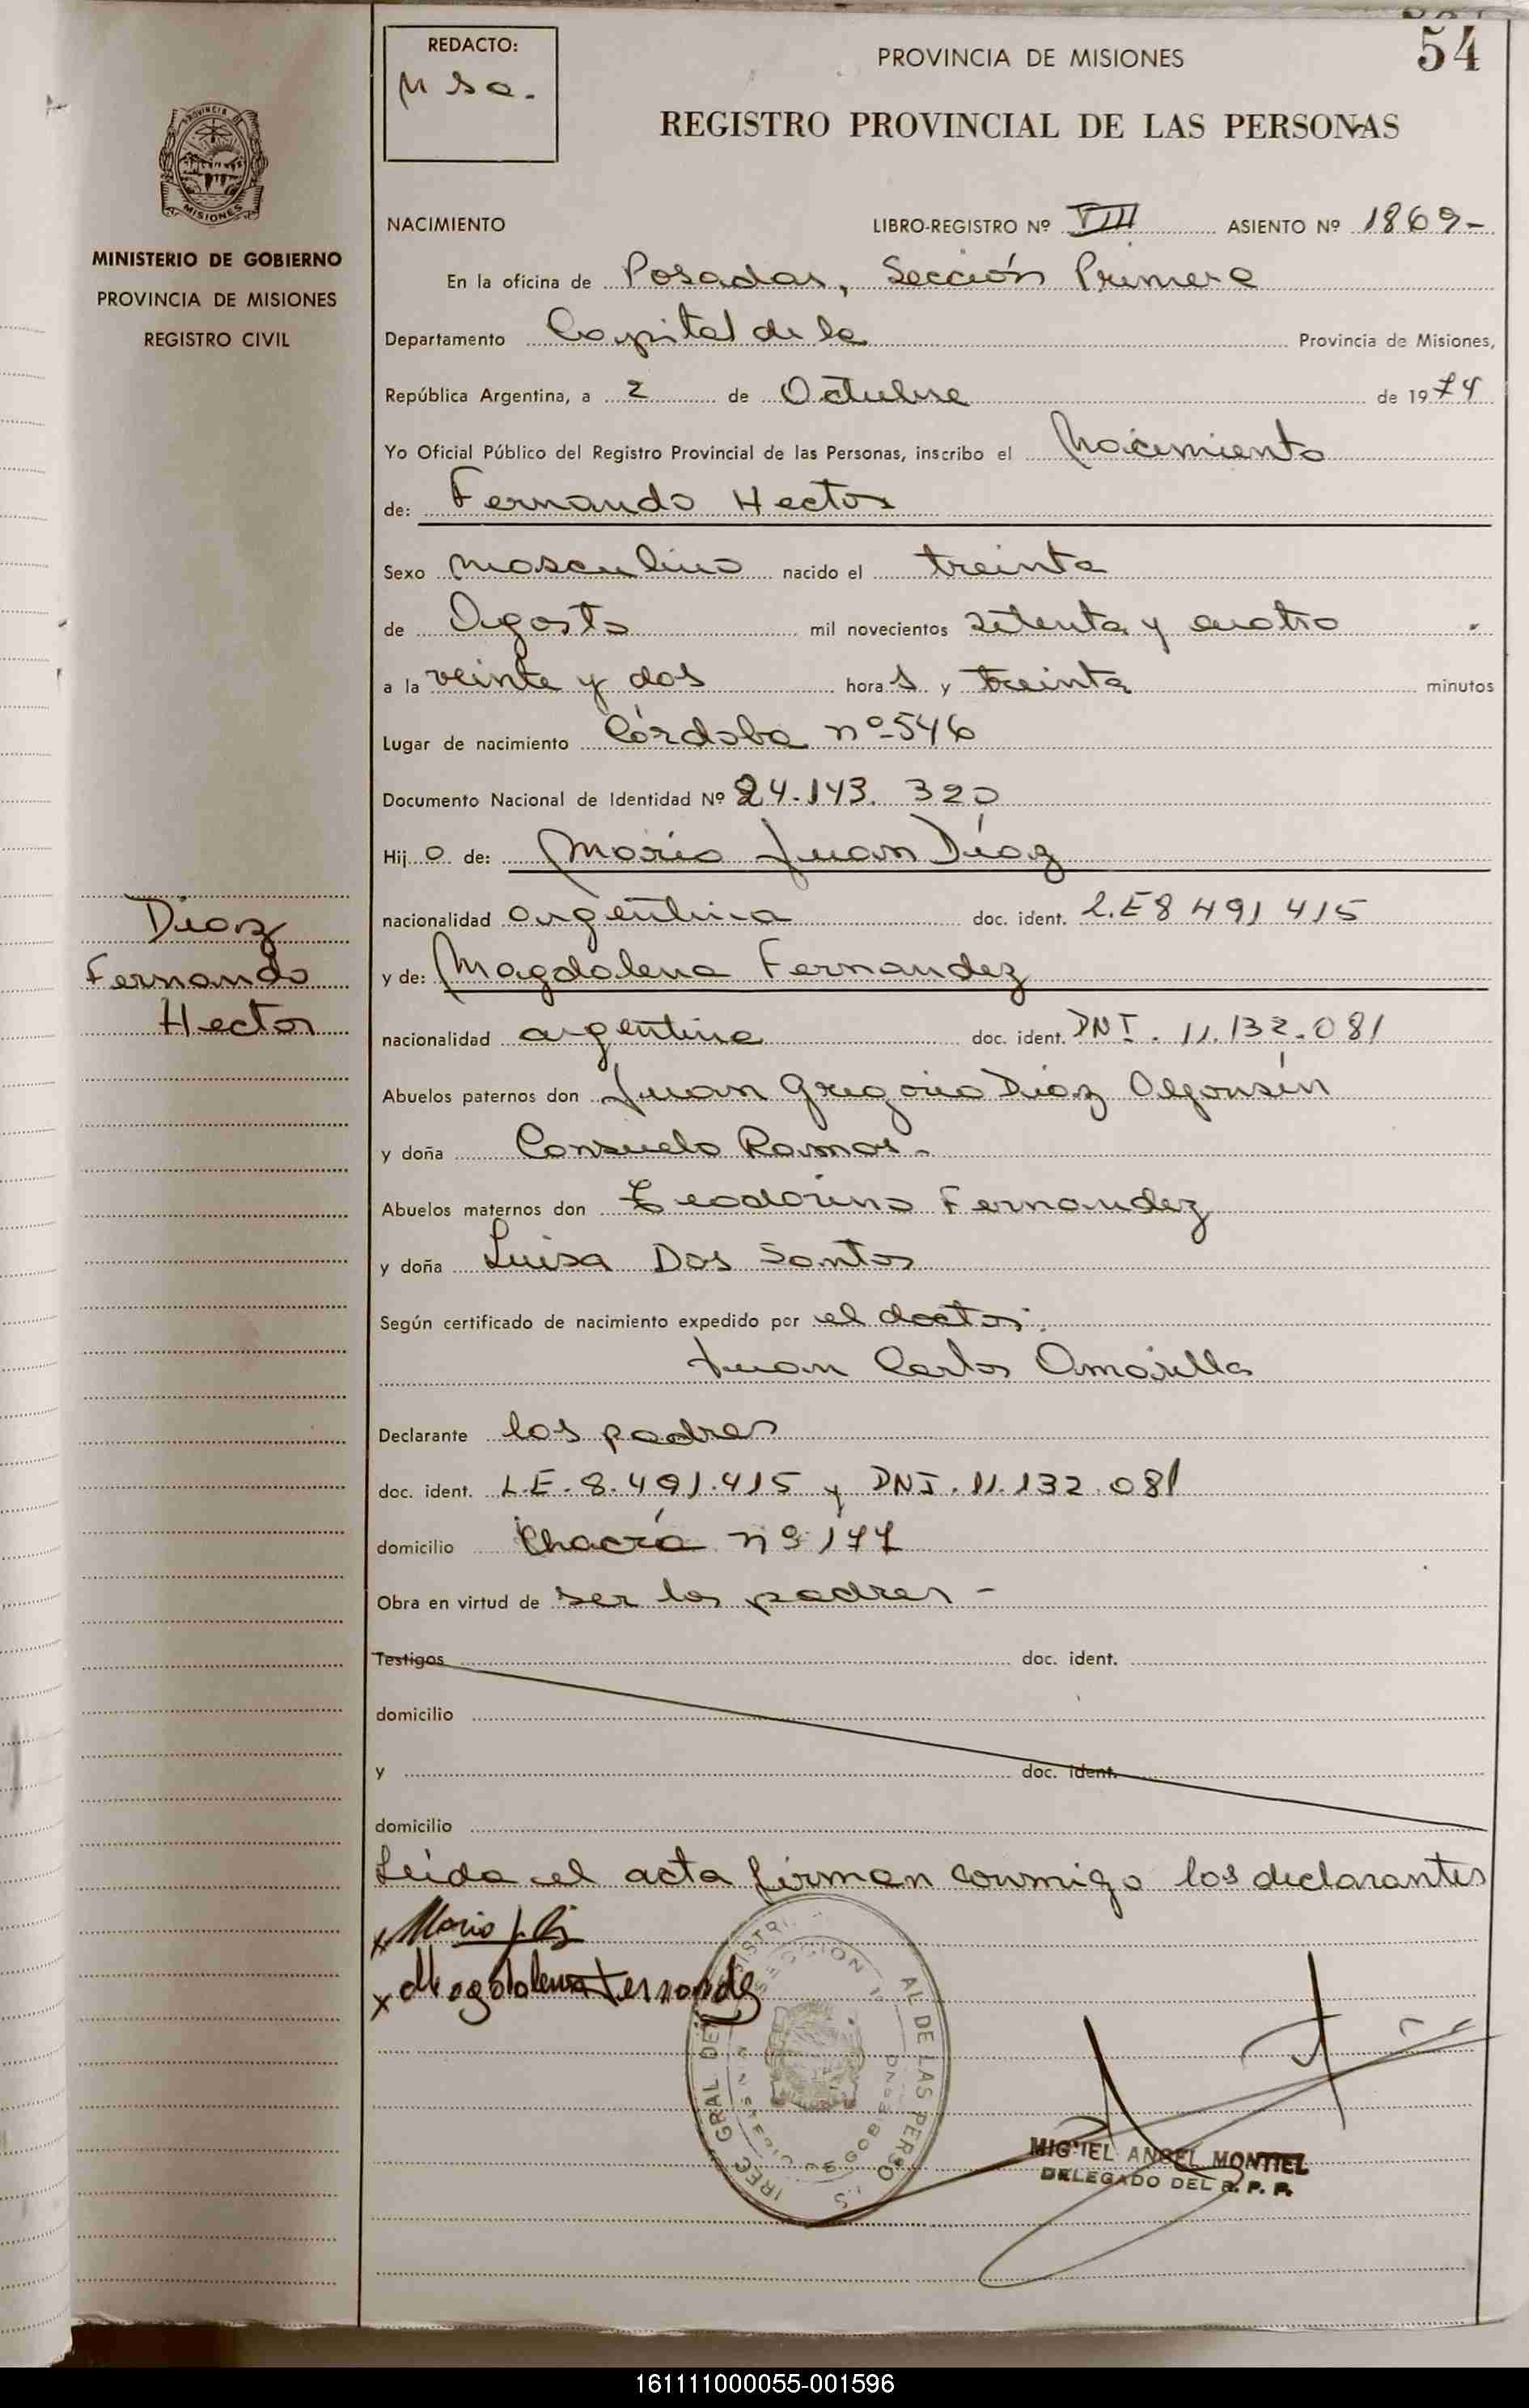 54
REDACTO:
PROVINCIA DE MISIONES
REGISTRO PROVINCIAL DE LAS PERSONAS
PROVINCIA DE
MISIONES
MINISTERIO DE GOBIERNO
PROVINCIA DE MISIONES
REGISTRO CIVIL
NACIMIENTO LIBRO-REGISTRO Nº VIII ASIENTO Nº 1869-
En la oficina de Posadas, Sección Primera
Departamento Capital de la Provincia de Misiones,
República Argentina, a 2 de Octubre de 1974
Yo Oficial Público del Registro Provincial de las Personas, inscribo el Nacimiento
de: Fernando Hector
Sexo masculino nacido el treinta
de Agosto mil novecientos setenta y cuatro
a la veinte y dos hora s y treinta minutos
Lugar de nacimiento Córdoba nº 546
Documento Nacional de Identidad Nº 24.143.320
Hij o de: Mario Juan Díaz
nacionalidad argentina doc. ident. L.E 8 491 415
y de: Magdalena Fernandez
nacionalidad argentina doc. ident. DNI. 11.132.081
Abuelos paternos don Juan Gregorio Díaz Alfonsín
y doña Consuelo Ramos.
Abuelos maternos don Teodorino Fernandez
y doña Luisa Dos Santos
Según certificado de nacimiento expedido por el doctor:
Juan Carlos Amarilla
Declarante los padres
doc. ident. L.E. 8.491.415 y DNI. 11.132.081
domicilio Chacra nº 177
Obra en virtud de ser los padres -
Testigos doc. ident.
domicilio
y doc. ident.
domicilio
Leida el acta firman conmigo los declarantes
x Mario J. Díaz
x Magdalena Fernandez
MIGUEL ANGEL MONTIEL
DELEGADO DEL R. P. P.
Diaz
Fernando
Hector
161111000055-001596